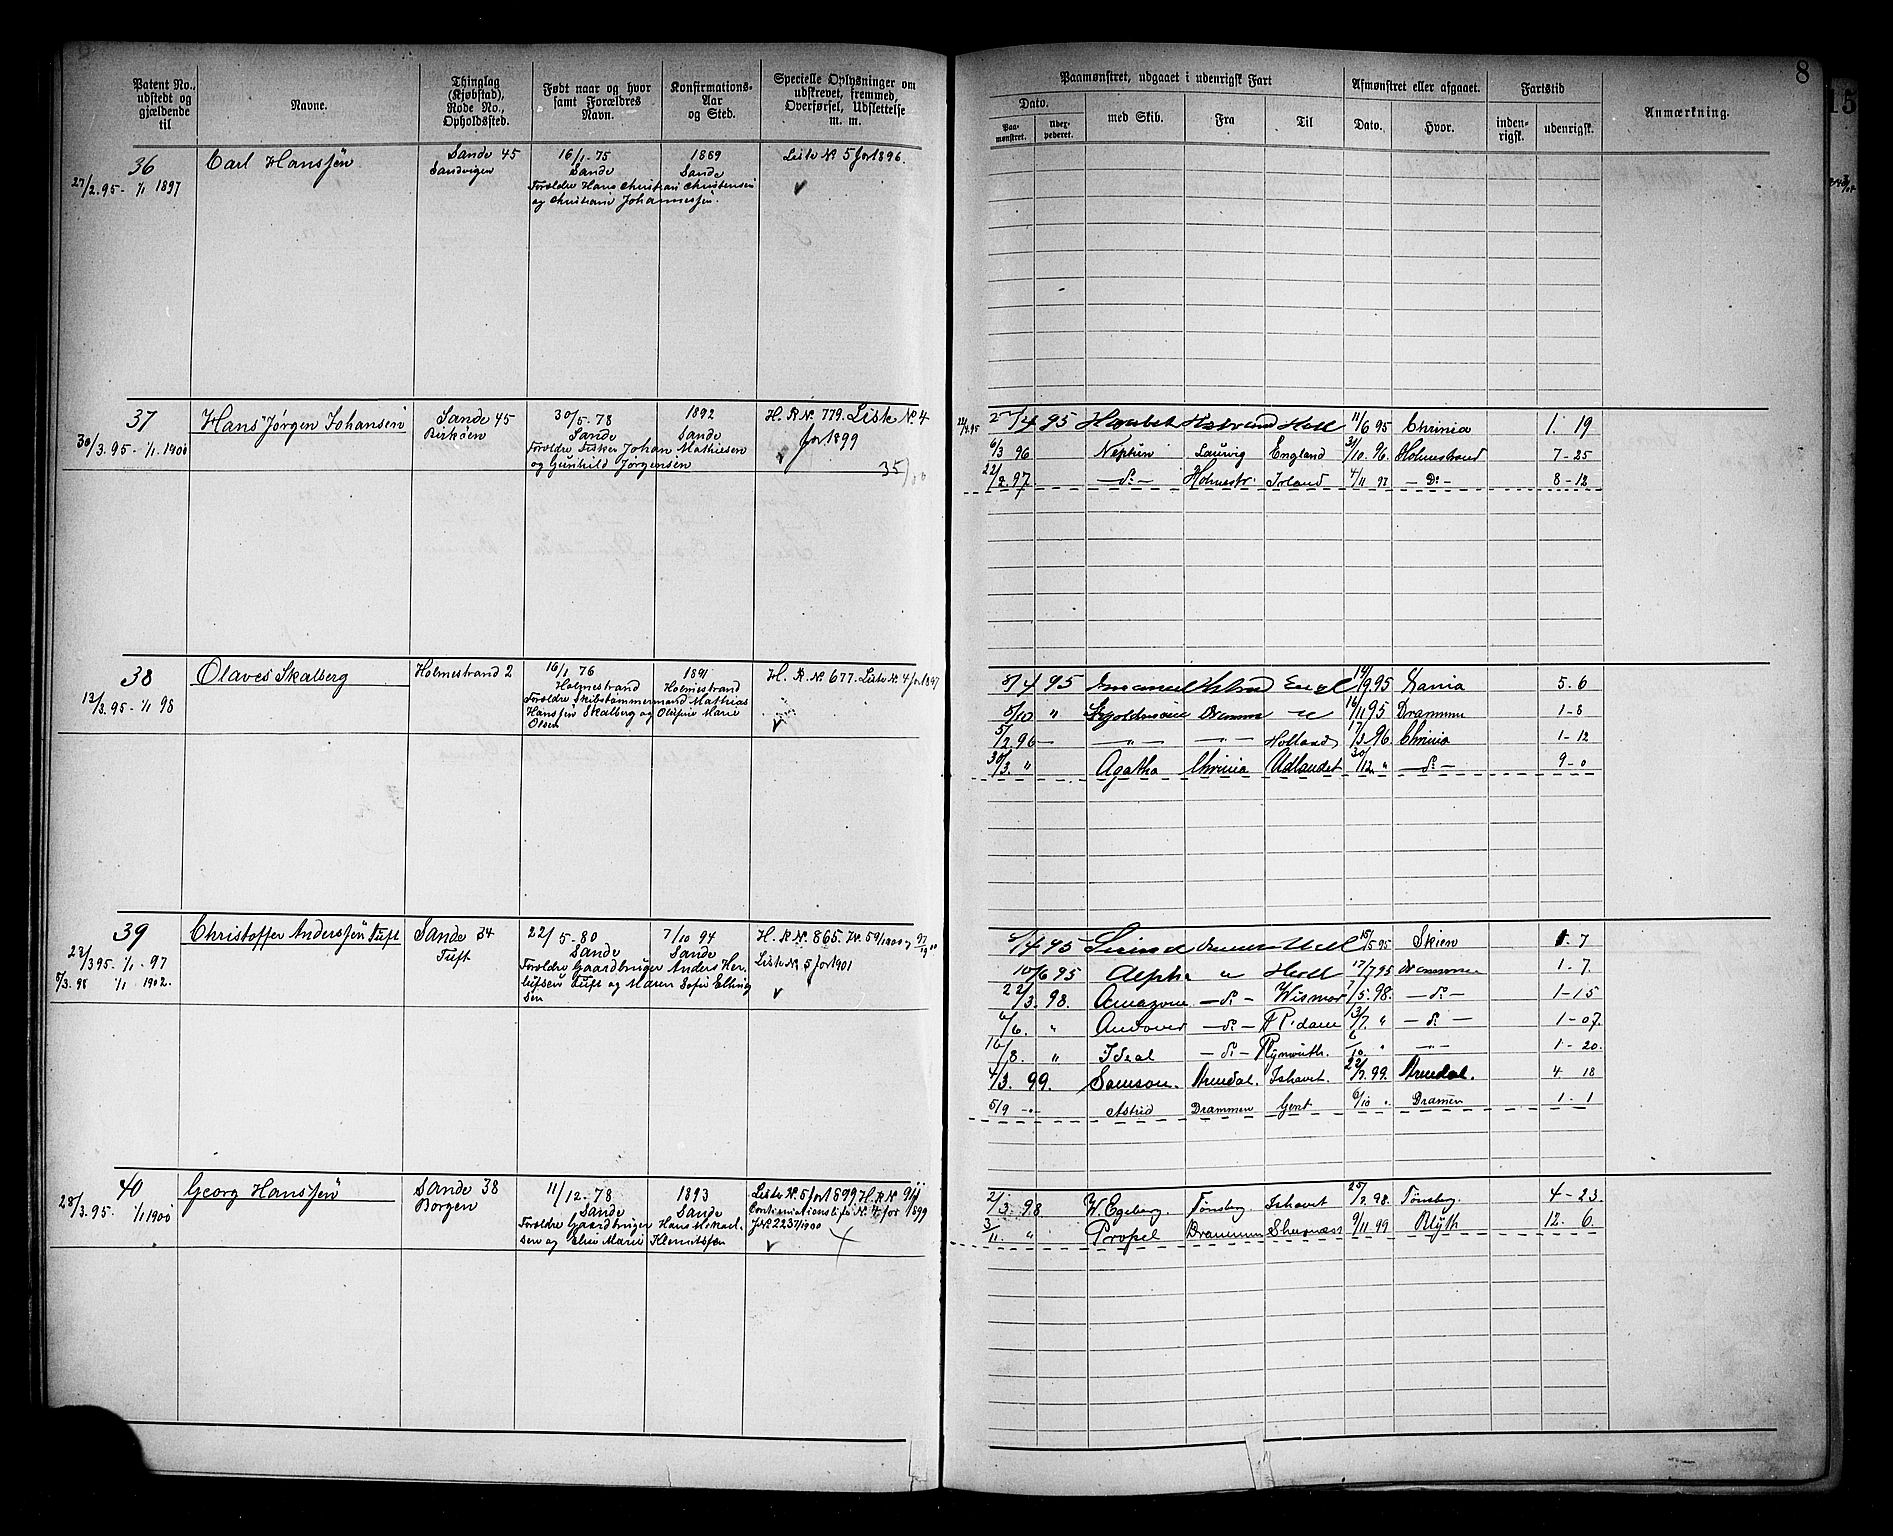 8
15
Patent No., udstedt og gjældende til
Navne.
Thinglag (Kjøbstad), Rode No., Opholdssted.
Født naar og hvor samt Forældres Navn.
Konfirmations-Aar og Sted.
Specielle Oplysninger om udskrevet, fremmed, Overførsel, Udslettelse m. m.
Paamønstret, udgaaet i udenrigsk Fart
Dato.
Paa-mønstret.
med Skib.
Fra
Til
Afmønstret eller afgaaet.
Dato.
Hvor.
Fartstid
inden-rigsk.
udenrigsk.
Anmærkning.
36
27/2.95 - 1/1 1897
Carl Hanssen
Sande 45
Sandvigen
16/1 75
Sande
1889
Sande
Forældre Hans Christian Christensen
og Christiane Johannessen.
Liste No 5 for 1896.
37
30/3.95 - 1/1 1900
Hans Jørgen Johansen
Sande 45
Birkøen
30/5-78
Sande
1892
Sande
Forældre Fisker Johan Mathiesen
og Gunhild Jørgensen
H. R No. 779. Liste No 4
for 1899
35/00
27/4 95 Holl 11/6 95 Chrinia 1. 19
6/3 96 Neptun Laurvig England 31/10 96. Holmestrand 7-25
22/2.97 - do - Holmestr. Irland 4/11 97 - Do - 8-12
38
12/3.95 - 1/1 98
Olaves Skalberg
Holmestrand 2
16/1 76
Holmestrand
1891
Holmestrand
Forældre Skibstømmermand Mathias
Hanssen Skalberg og Olufine Marie
Olsen
H. R No 677. Liste No 4 for 1897
8/4 95 Emanuel Engl 14/9.95 5. 6
5/10 " 16/11 95 Drammen 1-8
5/2.96 - - " - - " - Holland 17/3.96. Chrinia 1-12
30/3. " Agatha Chrinia Udlandet 30/12 " - do - 9-0
39
23/3 95 - 1/1. 97
5/3. 98 1/1 1902.
Christoffer Anderssen Tuft
Sande 34
Tuft
22/5-80
Sande
7/10 94
Sande
Forældre Gaardbruger Anders Her-
lufsen Tuft og Maren Sofie Elling
sen
H. R No. 865. No. 59/1900
Liste No. 5 for 1901
/4 95 Holl 15/5 95 Skien 1. 7
10/6 95 Alpha " Holl 17/7 95 Drammen 1. 7.
22/3. 98. Amazone - do - Wismar 7/5. 98. - do - 1-15
6/6. " Andover - do - 13/7. " - do - 1-07.
16/8. " Ideal - do - Plymouth. 6/10. " - " - 1-20.
4/3. 99. Samson. Arendal. Ishavet. 22/7. 99. Arendal. 4 18
5/9 - " - Astrid Drammen Gent 6/10 " Dramen 1-1
40
28/3.95. 1/1 1900
Georg Hanssen
Sande 38
Borgen
11/12.78
Sande
1893
Sande
Forældre Gaardbruger Hans Mikael-
sen og Elise Marie Klemetsen
Liste No. 5 for 1899 H. R No
for 1899
J No 2237/1900
2/3. 98 W. Egeberg. Tønsberg. Ishavet 25/7.98. Tønsberg. 4-23
3/11. " Propel Drammen Sheerness 9/11 99. Blyth 12. 6.